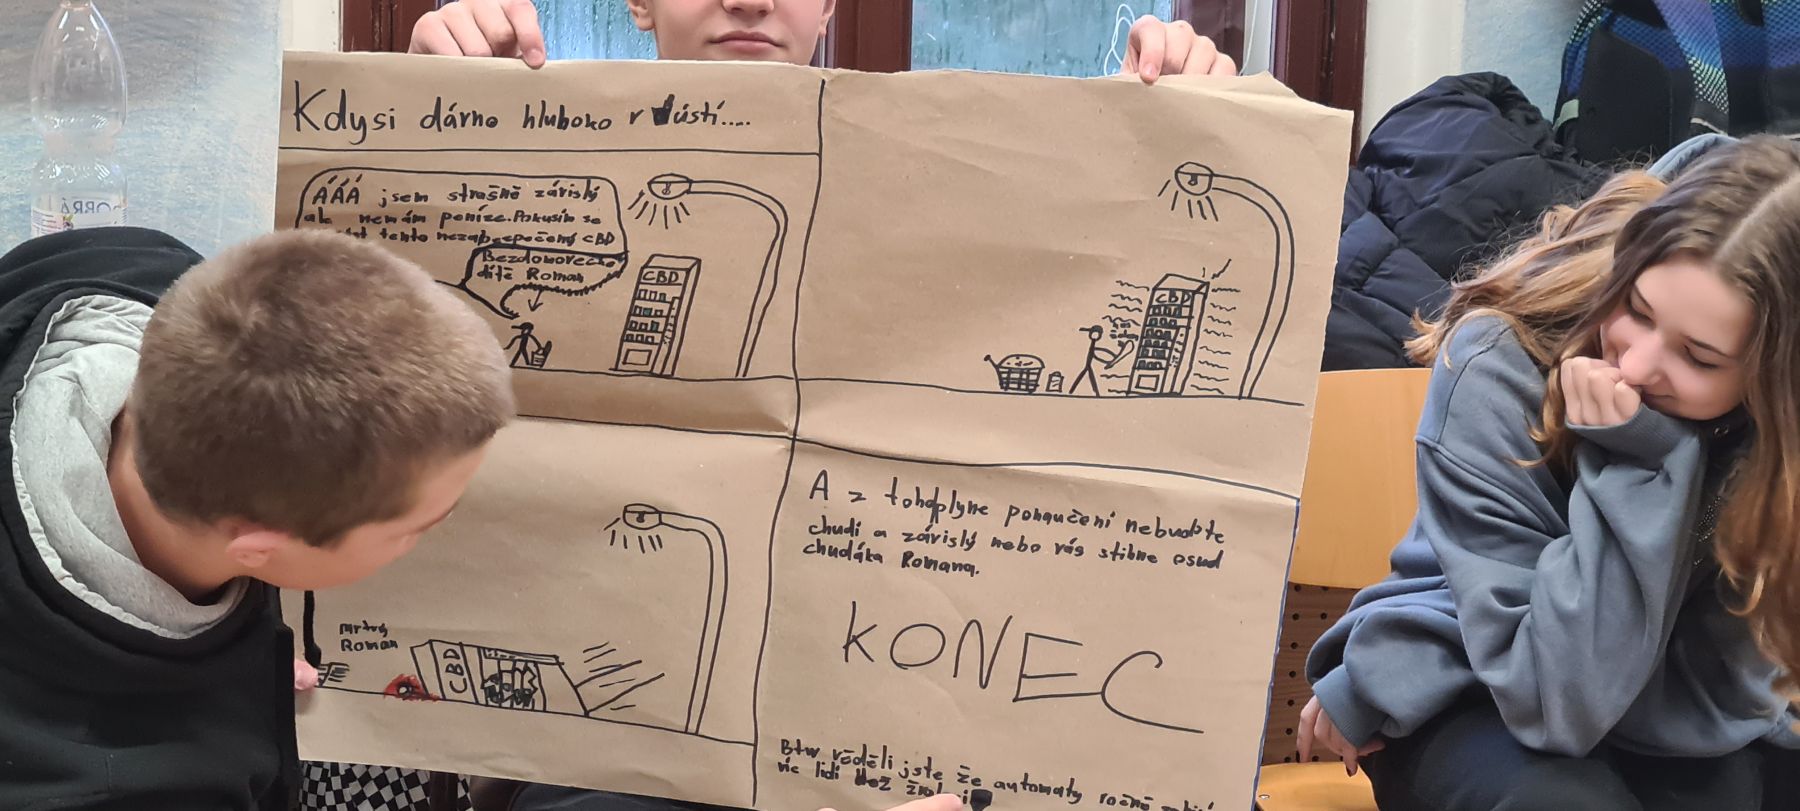 Kdysi dávno hluboko v Ústí....
ÁÁÁ jsem strašně závislý
ale nemám peníze. Pokusím se
tento nezabezpečený CBD
Bezdomovecké
dítě Roman
CBD
CBD
mrtvý
Roman
CBD
A z toho plyne ponaučení nebuďte
chudí a závislý nebo vás stihne osud
chudáka Romana.
KONEC
Btw věděli jste že automaty ročně
víc lidí než